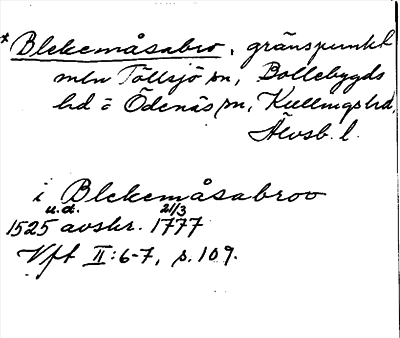 *Blekemåsabro, gränspunkt
mln Töllsjö sn, Bollebygds
hd o Ödenäs sn, Kullings hd,
Älvsb. l.
i Blekemåsabroo
u.d. 21/3
1525 avskr. 1777
Vft II:6-7, s. 109.